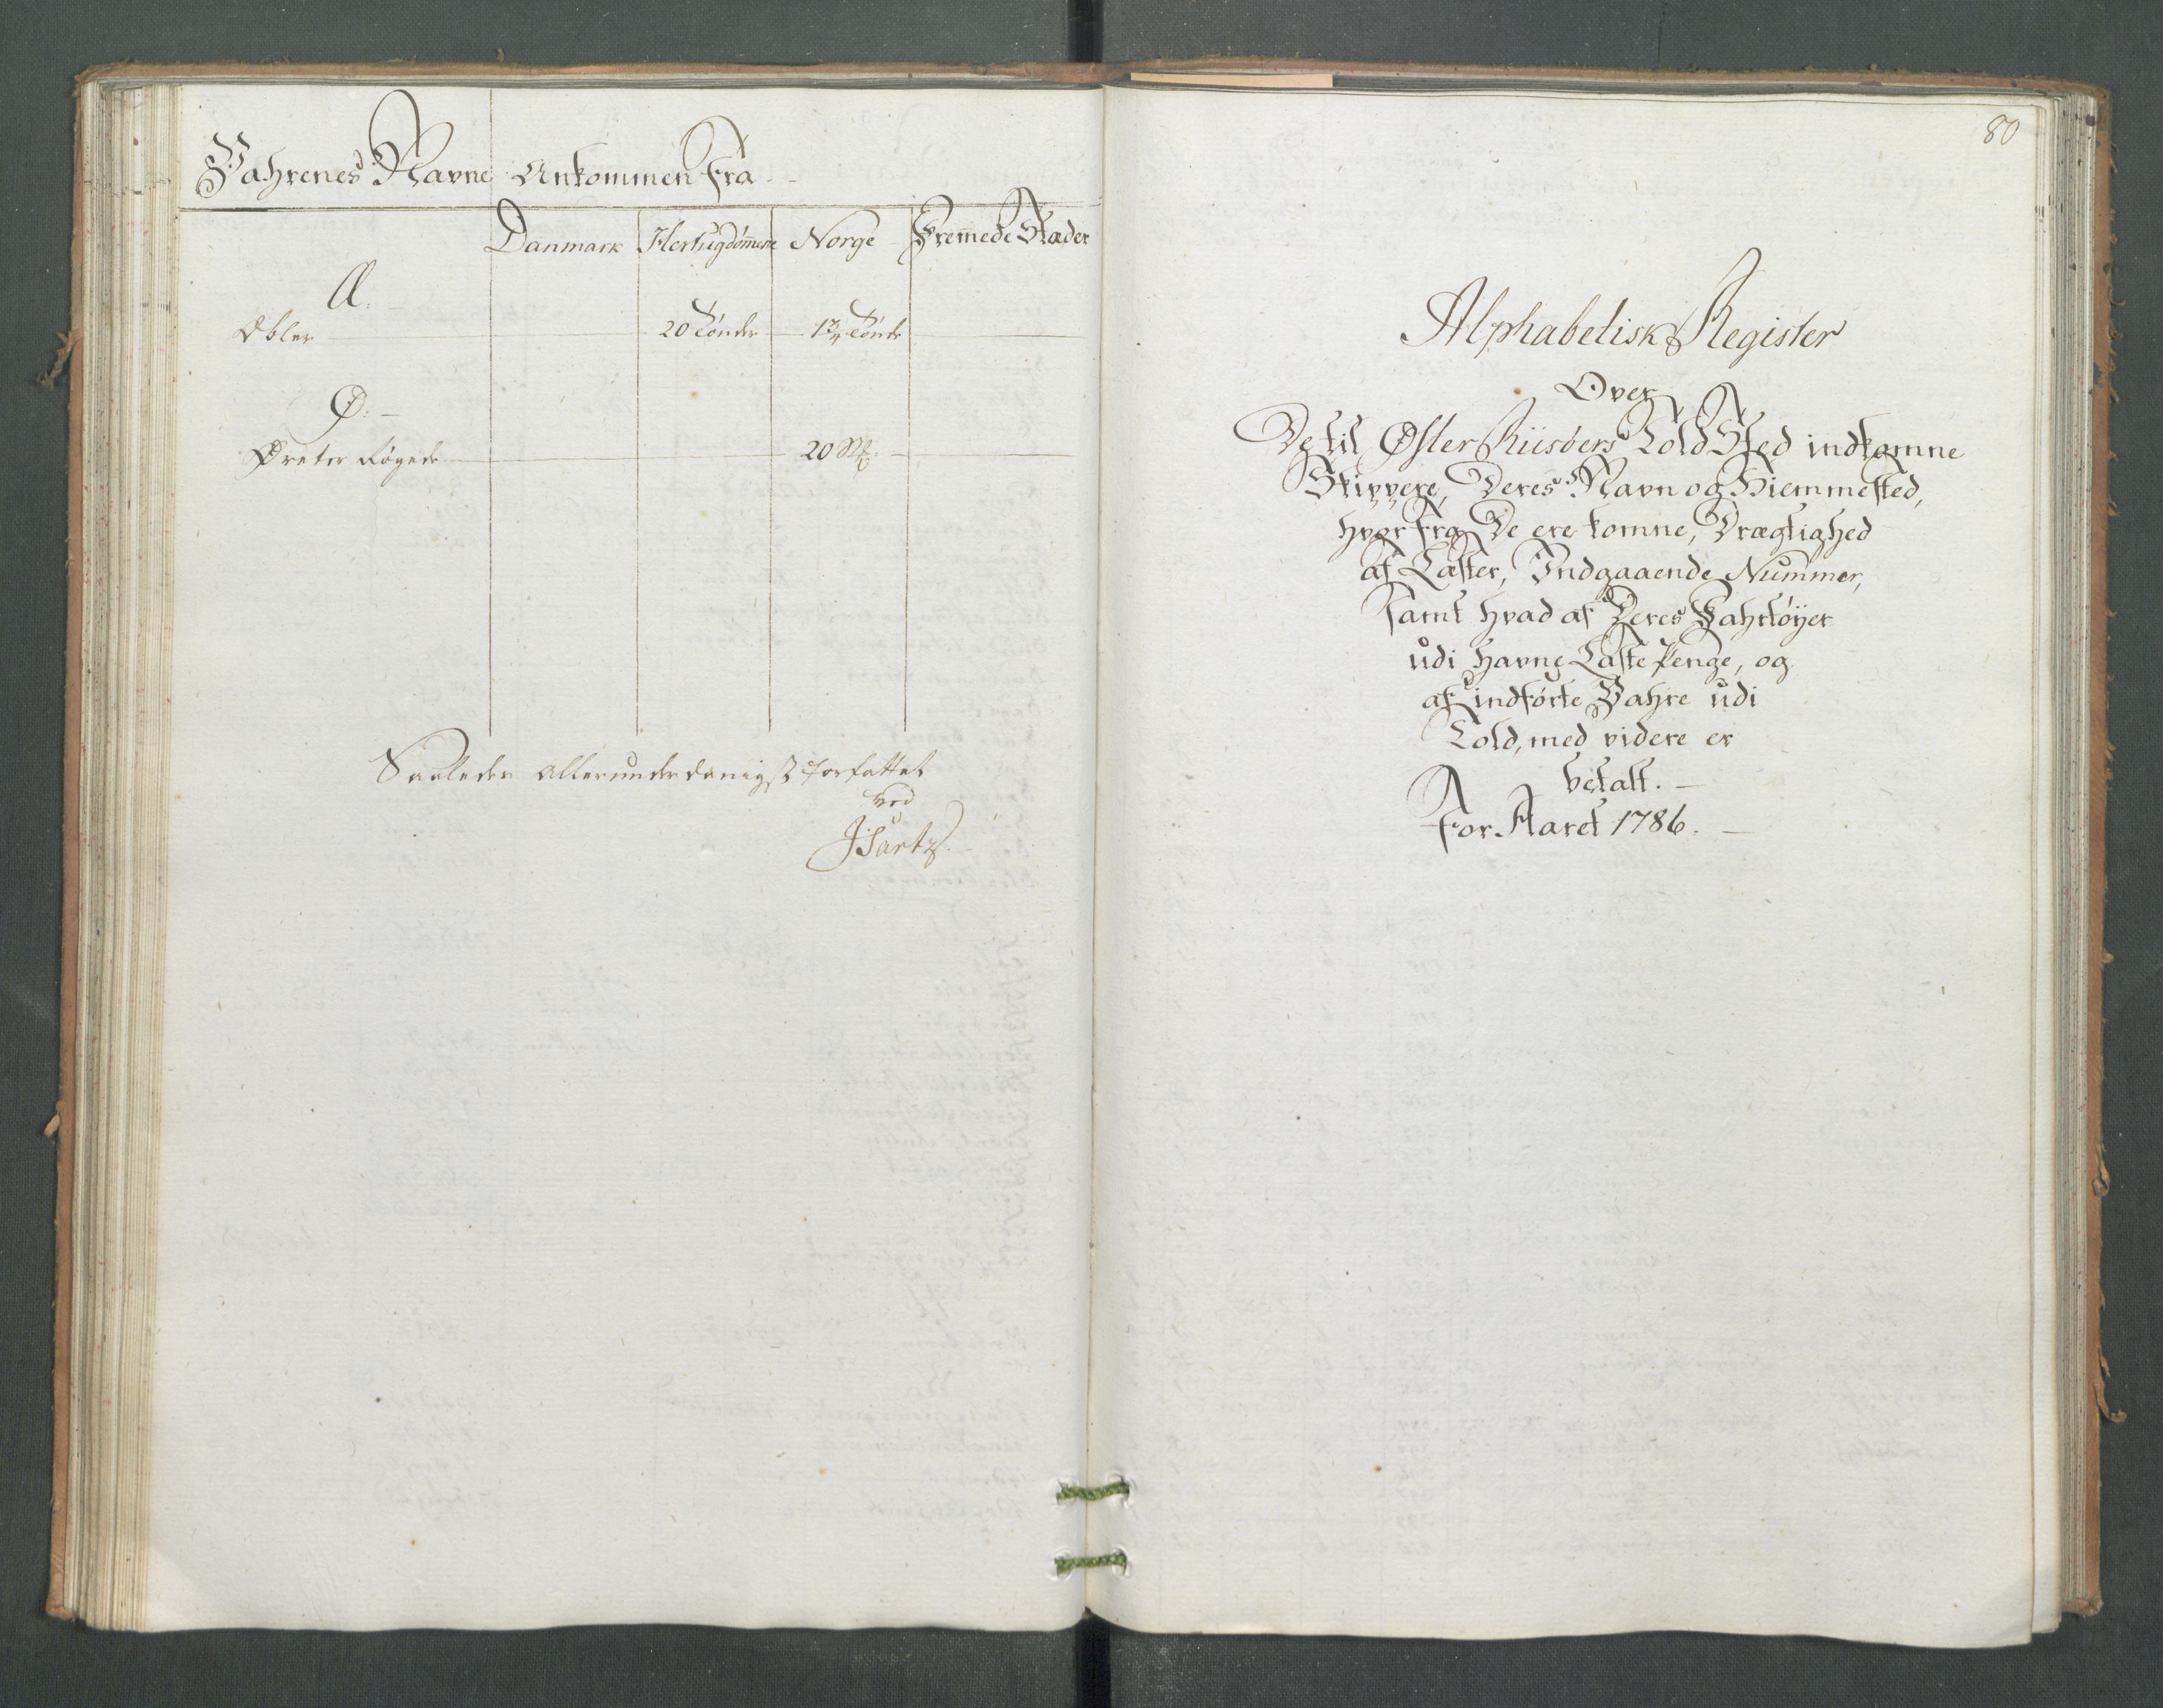 Vahrenes Navne Ankommen fra
Danmark Hertugdømene Norge Fremede Stæder
Æ:
Æbler 20 Tønder 1¾ Tønde
Ø:
Ørreter Røgede 20 
Saaledes allerunderdanigst forfattet
ved

80
Alphabetisk Register
Over
De til Øster Riisøers Told Sted indkomne
Skippere, Deres Navn og Hiemmested,
hvor fra De ere komne, Drægtighed
af Læster, Indgaaende Nummer,
samt hvad af Deres Fahrtøyer
udi Havne Læste Penge, og
af indførte Vahre udi
Told, med videre er
betalt.
For Aaret 1786.